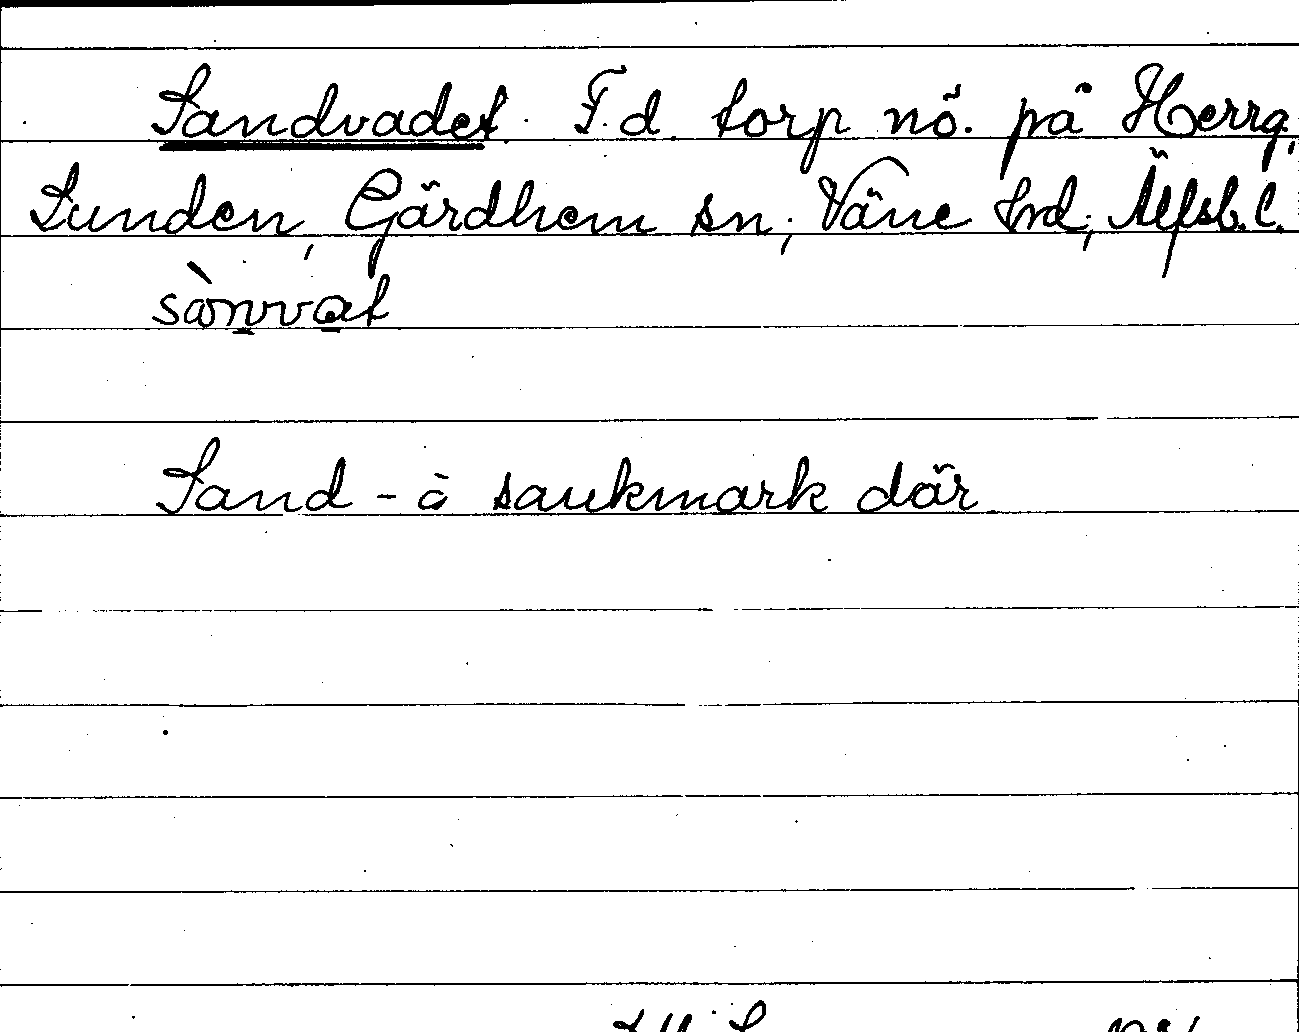 Sandvadet. F.d. torp nö. på Herrg.
Sunden, Gärdhem sn, Väne hd, Älfsb. l.
sànvat
Sand - å sankmark där